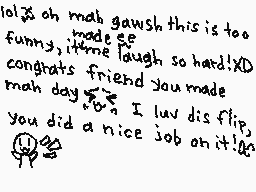 lol oh mah gawsh this is too
funny, it made ee me laugh so hard! XD
congrats friend you made
mah day I luv dis flip,
you did a nice job on it!